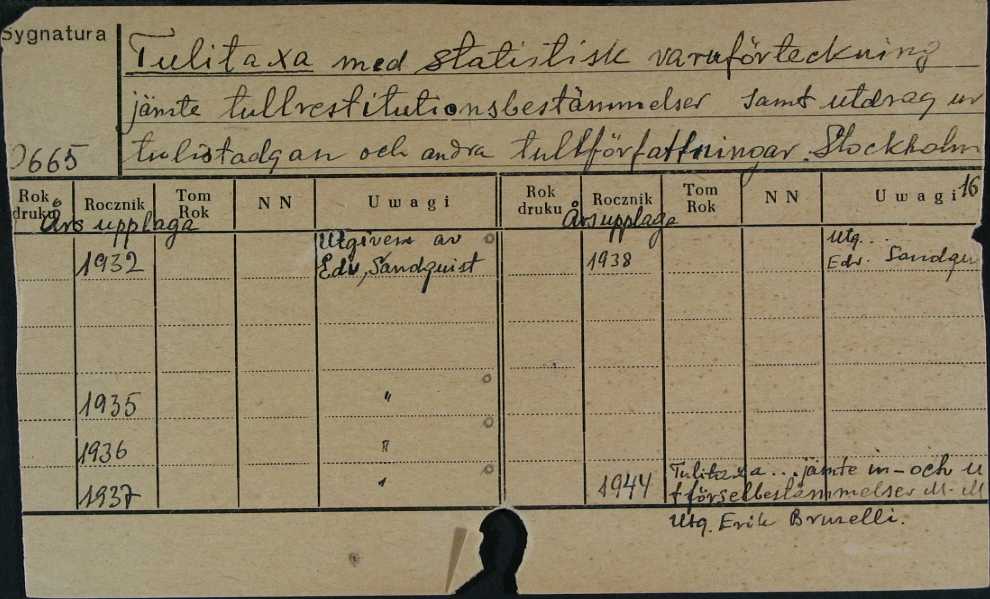 Sygnatura
Tulitaxa med statistisk varuförteckning
jämte tullrestitutionsbestämmelser samt utdrag ur
tulistadgan och andra tullförfattningar. Stockholm
O665
Rok druku Rocznik Tom Rok NN Uwagi Rok druku Rocznik Tom Rok NN Uwagi 16
Årsupplaga Årsupplaga
1932 Utgiven av 1938 Utg...
Edv, Sandquist Edv. Sandqu
1935 "
1936 "
1937 " 1944 Tulitaxa... jämte in- och u
tförselbestämmelser M. M
Utg. Erik Bruselli.